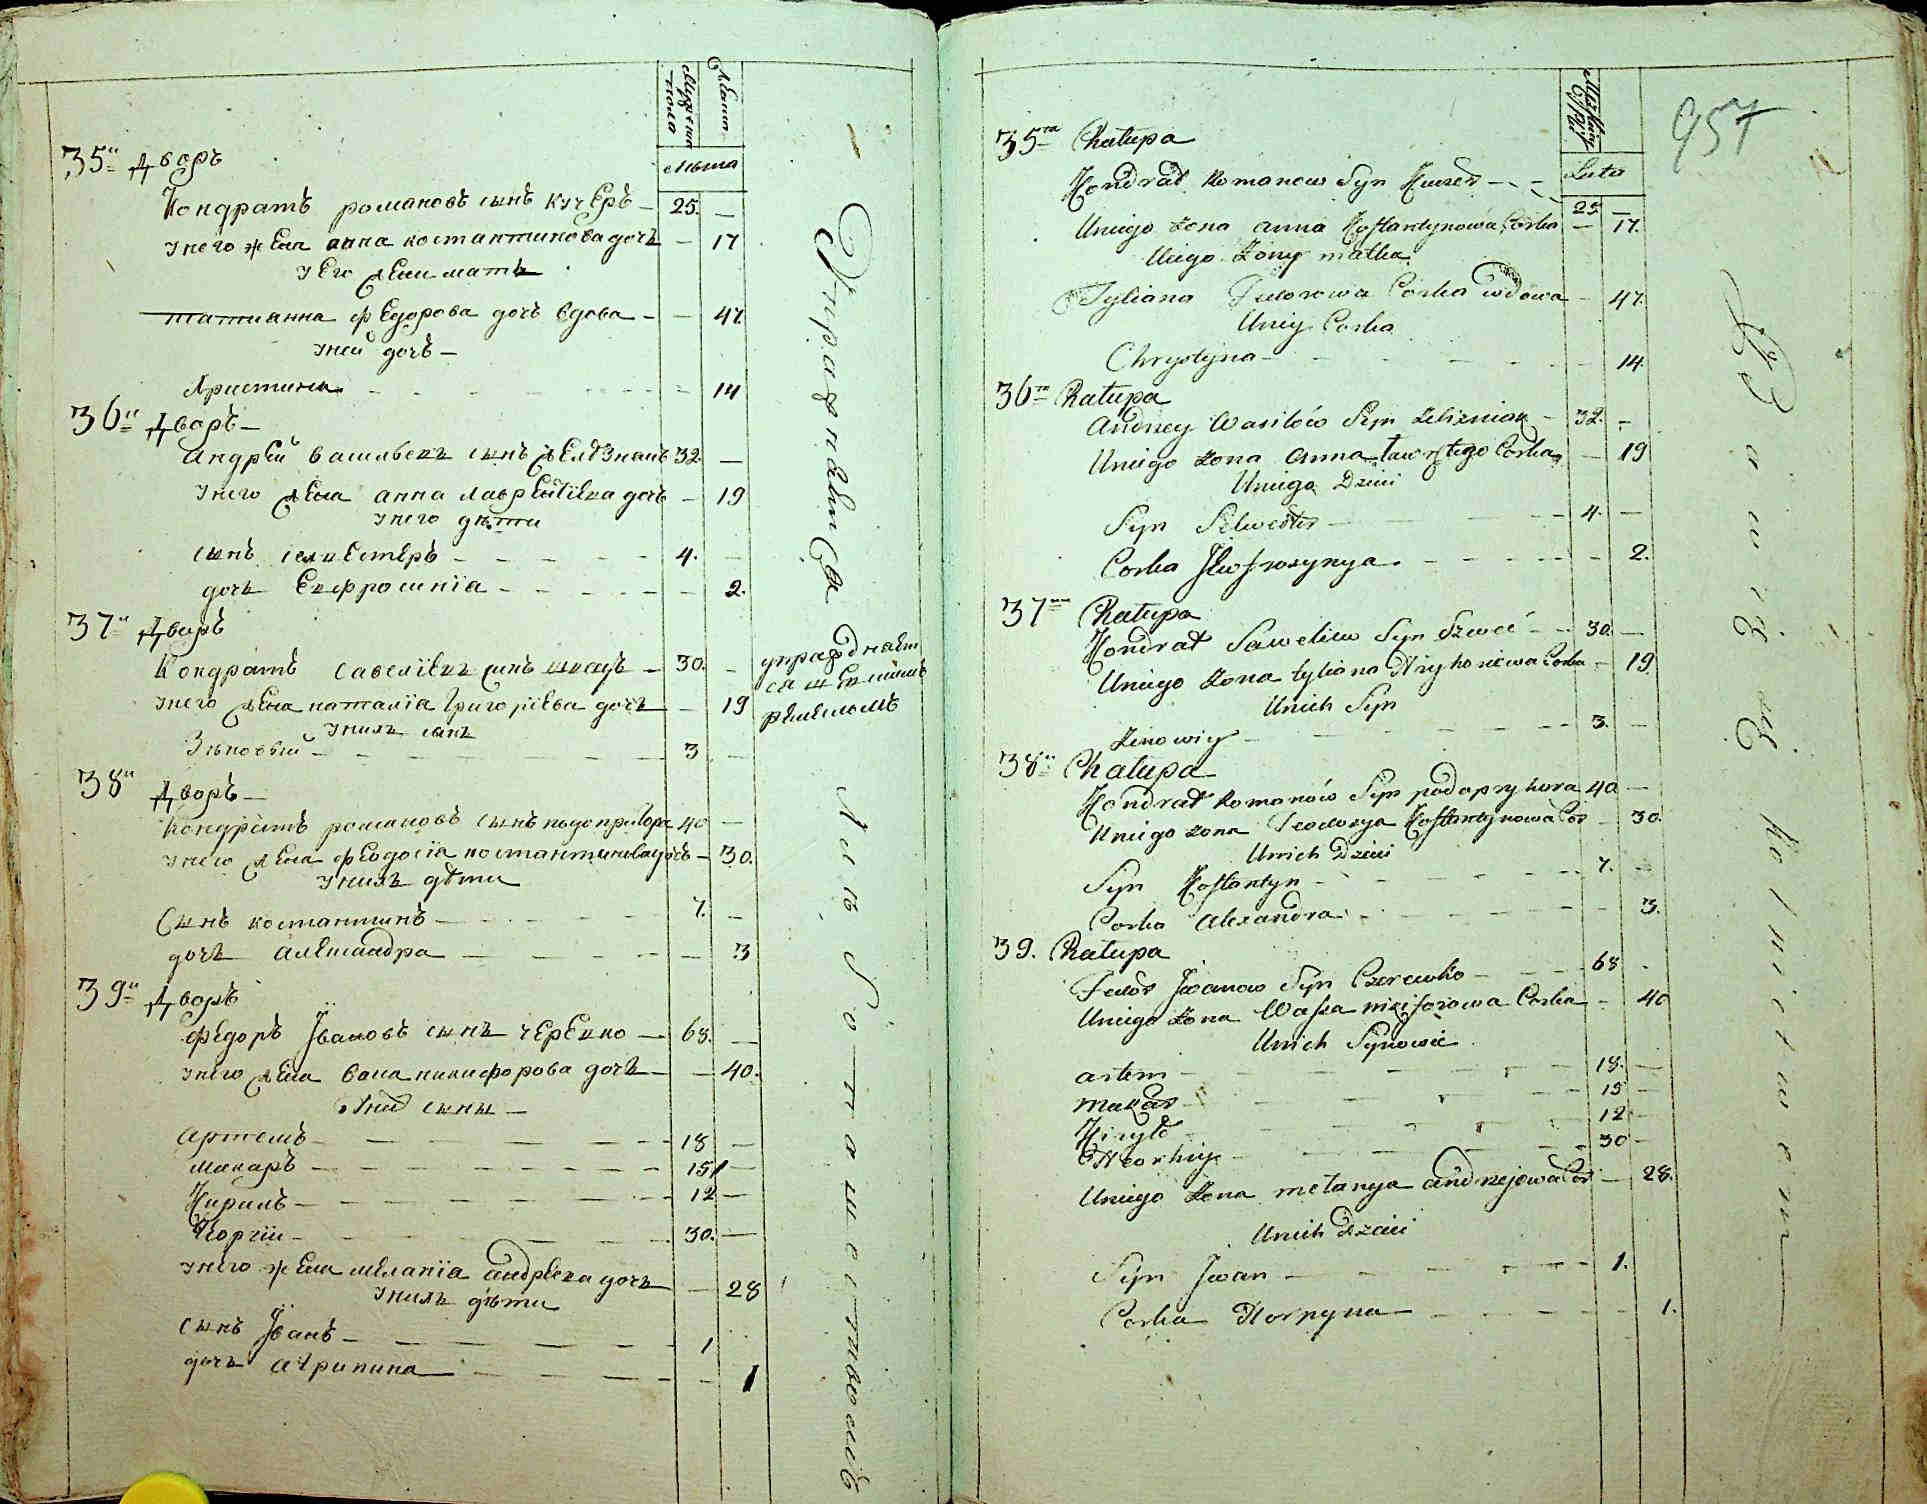 Мужеска пола
Женска
Лѣта
35й Дворъ
Кондратъ романовъ сынъ кучеръ — 25. —
Унего жена анна костантинова дочь — 17
Уего жени мать
татианна федорова дочь вдова — — 47
Уней дочь —
Христина — — 14
36й Дворъ —
андрей васильевъ сынъ желѣзнакъ 32 —
Унего жена анна лаврентіева дочь — 19
Унего дѣти
сынъ селиестеръ — 4. —
дочь Евфросинїа — — 2.
37й Дворъ
Кондратъ савелїевъ сынъ швецъ — 30. —
Унего жена наталїа григорїева дочь — 19
Унихъ сынъ
Зѣновѣй — 3 —
38й Дворъ —
Кондратъ романовъ сынъ подопригора 40 —
Унего жена феодосїа костантинова дочь — 30.
Унихъ дѣти
Сынъ костантинъ — 7. —
дочь александра — — 3
39й Дворъ
федоръ Ївановъ сынъ черевко — 68. —
Унего жена васа никифорова дочь — — 40.
Уних сыны —
артемъ — 18 —
макаръ — 15 —
Кирилъ — 12 —
Георгїи — 30. —
Унего жена меланїа андреева дочь — 28
Унихъ дѣти
сынъ Їванъ — 1
дочь агрипина — — 1
Упражнается
упражднает
ся швецкимъ
ремесломъ
Хлѣбопашествомъ
Lata
957
35ta Chałupa
Kondrat Romanow Syn Kuczer — 25 —
Uniego żona anna Kostantynowa Corka — 17.
Uiego Żony matka
Tyliana Fedorowa Corka wdowa — 47.
Uniey Corka
Chrystyna — 14.
36ta Chałupa
Andrzey Wasilów Syn Zelizniak — 32. —
Uniego żona anna Ławrętego Corka — 19
Uniego Dzieci
Syn Selwester — 4. —
Corka Jewfrozynya — — 2.
37ma Chałupa
Kondrat Saweliw Syn Szweć — 30. —
Uniego żona tyliana Hryhoriewa Corka — 19
Unich Syn
Zenowiy — 3. —
38a Chałupa
Kondrat Romanów Syn podopryhora 40 —
Uniego żona Teodozya Kostantynowa Cor — 30.
Unich Dzieci
Syn Kostantyn — 7. —
Corka Alexandra — — 3.
39. Chałupa
Fedor Jwanow Syn Czerewko — 68 -
Uniego żona Waska nikiforowa Corka — 40
Unich Synowie
artem — 18. —
makar — 15 —
Kiryło — 12 —
Heorhiy — 30 —
Uniego żona melanya andrzejowa Cor — 28.
Unich Dzieci
Syn Jwan — 1.
Corka Horpyna — — 1.
Bawią się Rolnictwem